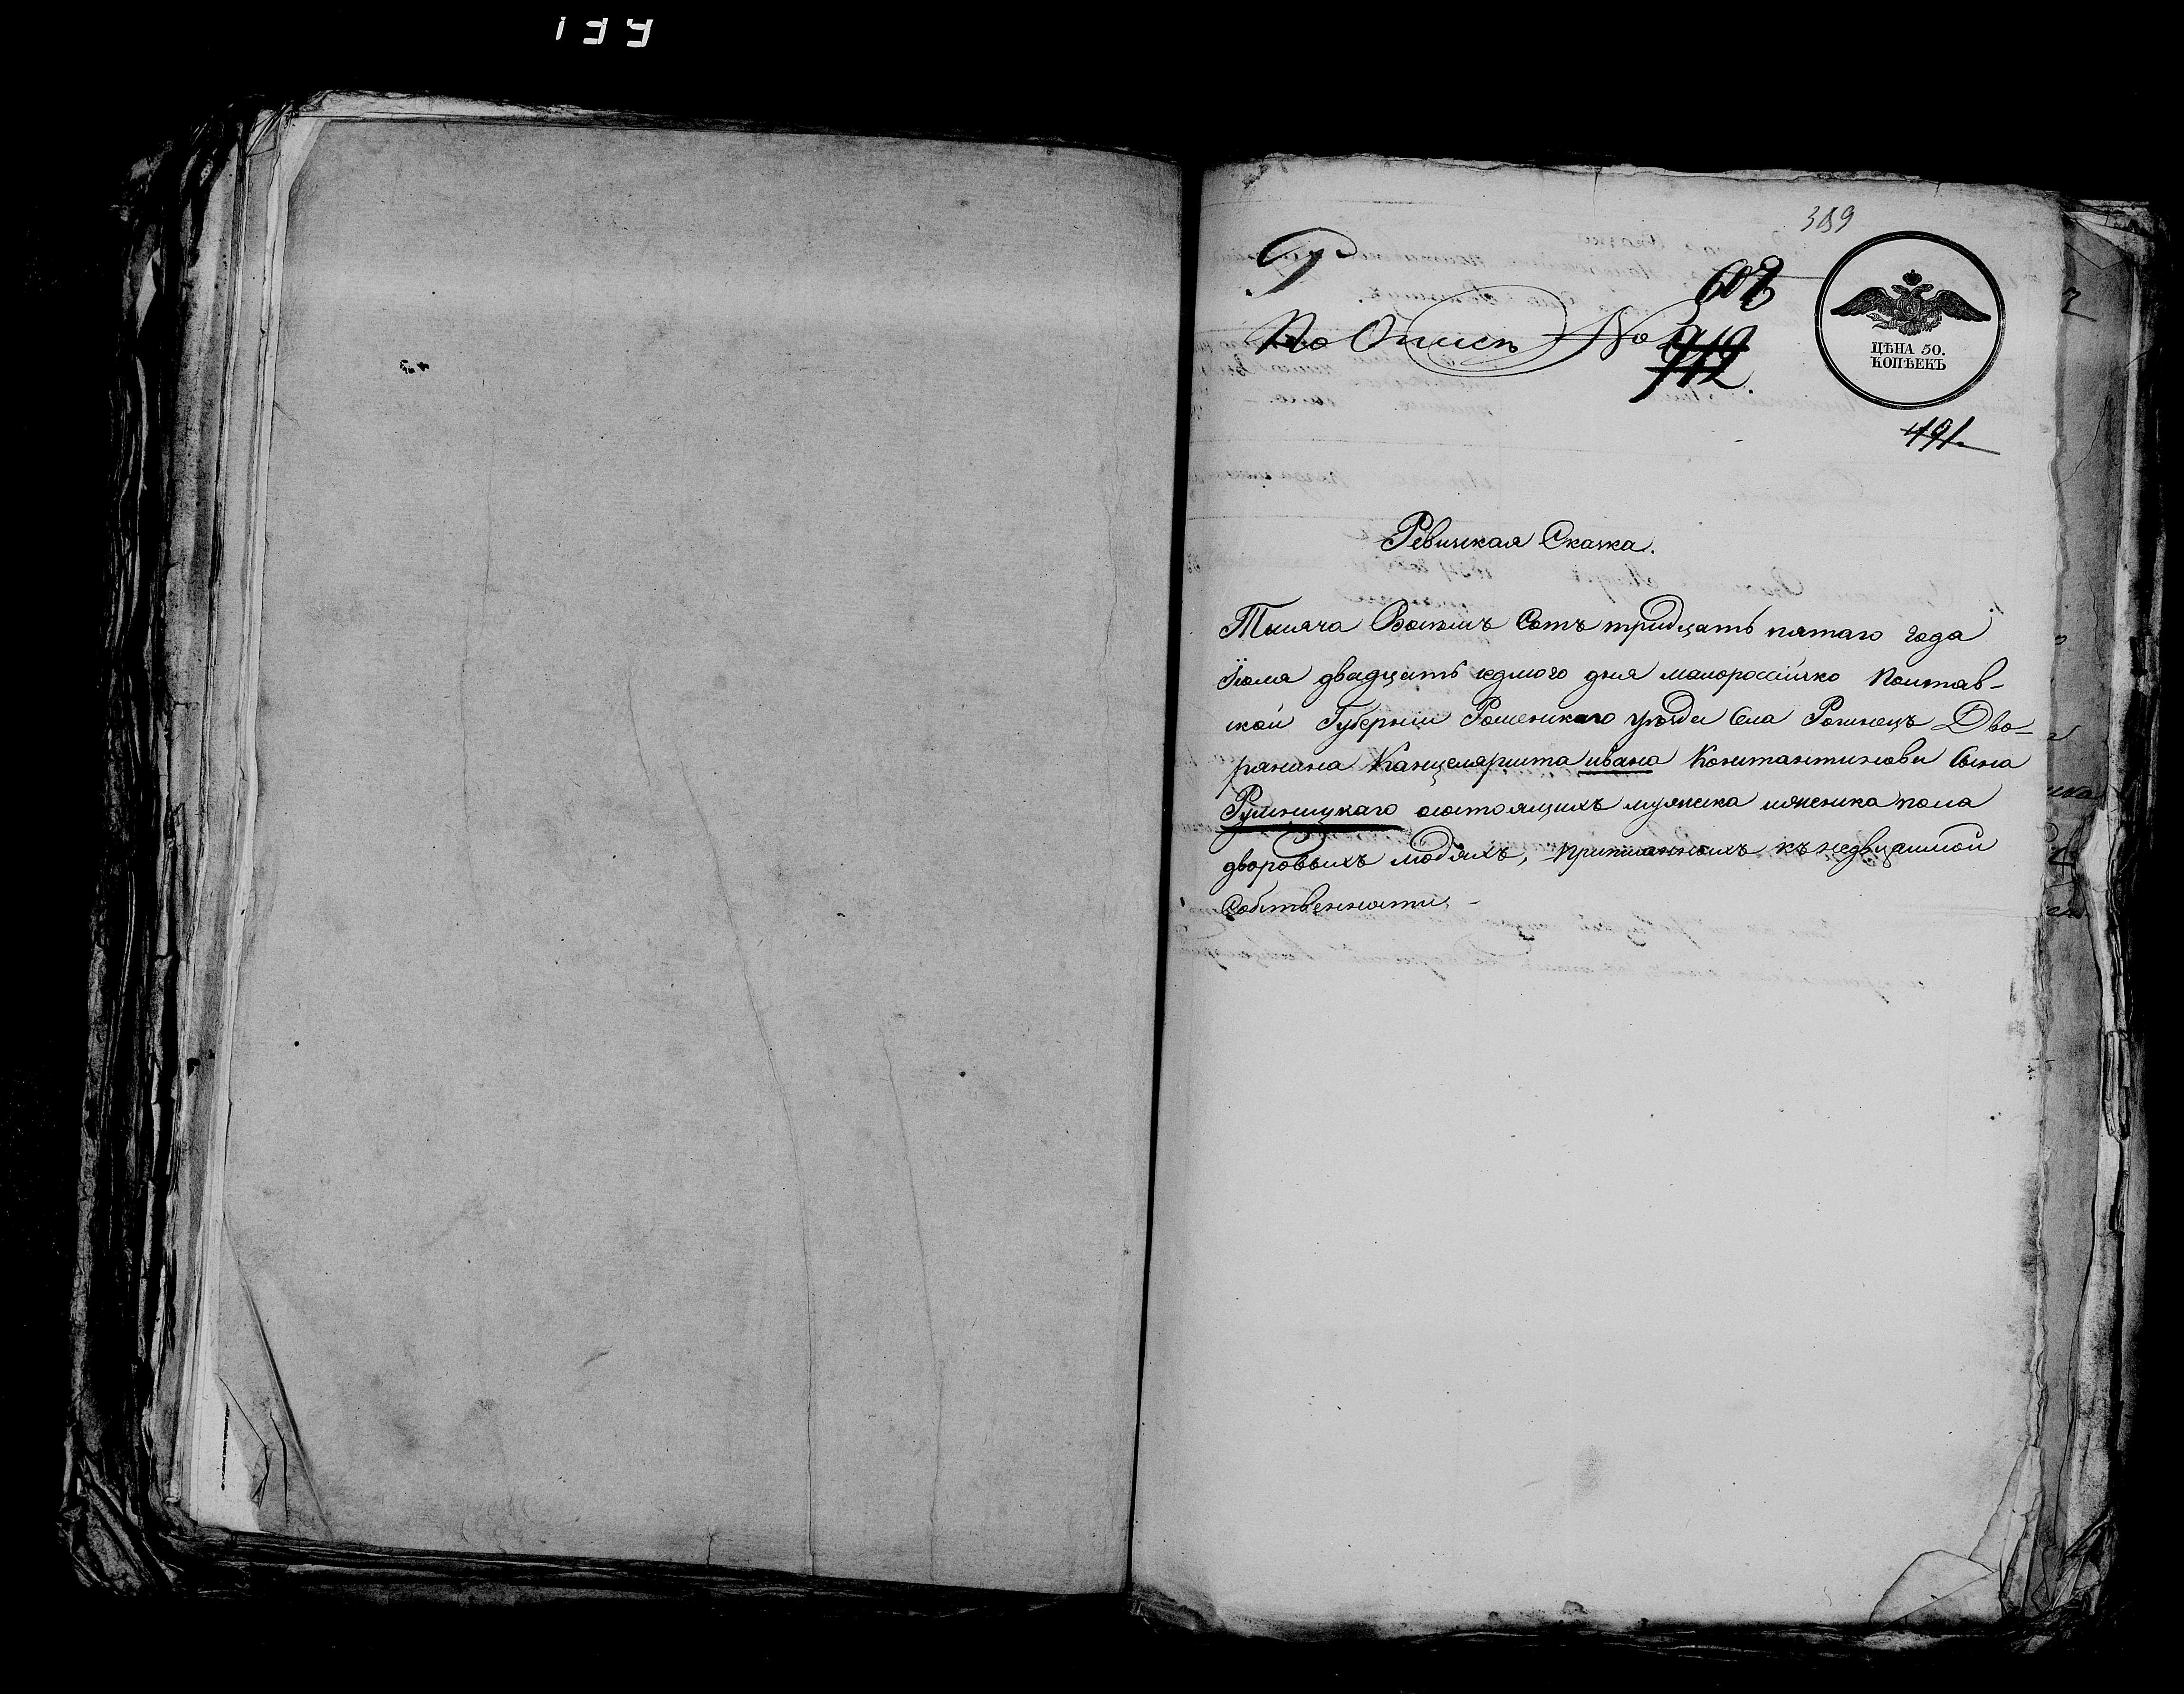 389
Р
608
По Описи No 912
ЦѢНА 50.
КОПѢЕКЪ
491.
Ревизская Сказка.
Тысяча Восемь Сотъ тридцать пятаго года
Іюля двадцать седмого дня малороссійско Полтав-
ской Губерніи Роменскаго уѣзда Села Рогинецъ Дво-
рянина Канцеляриста ивана Константинова Сына
Рулницкаго состоящихъ мужеска иженска пола
дворовыхъ людяхъ, приписанныхъ къ недвижимой
Собственности. -